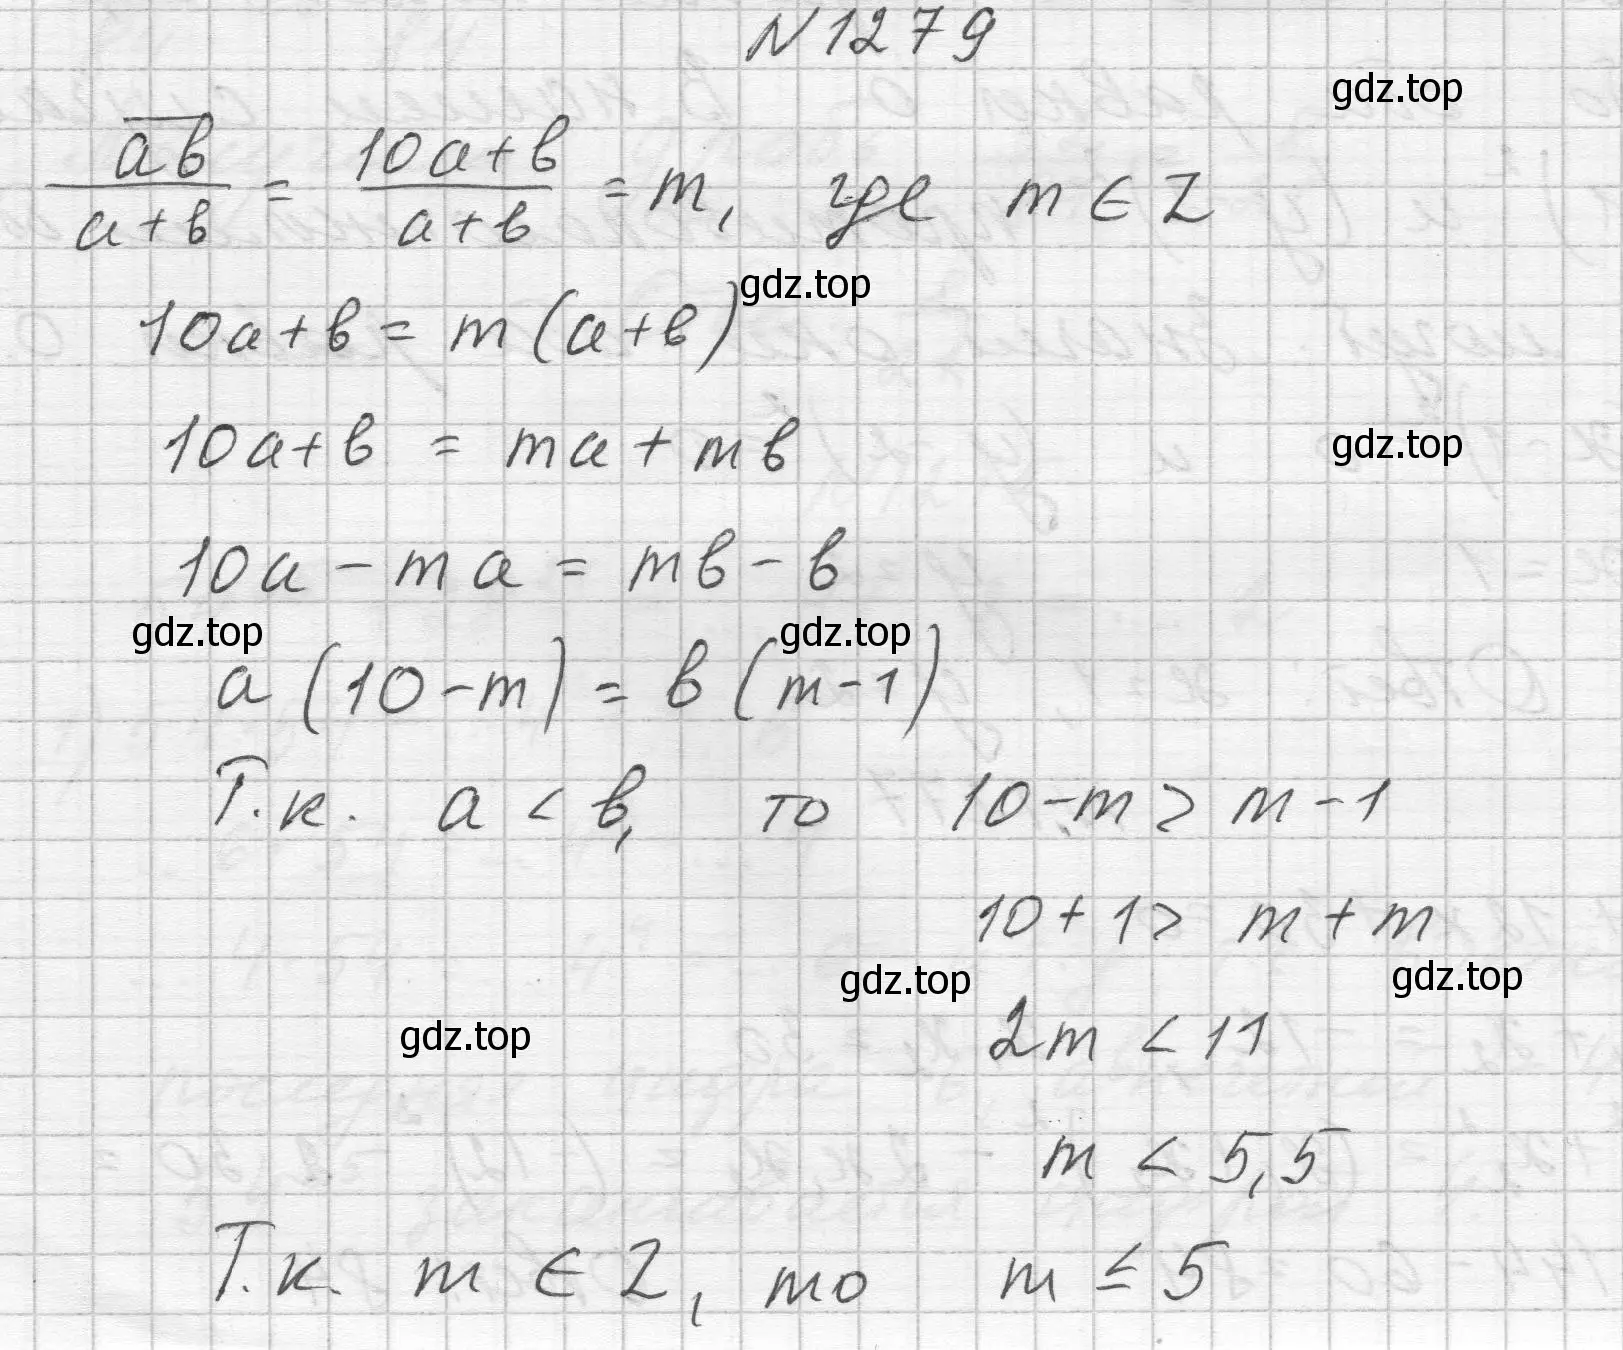 N 1279
gdz.top
ab/(a+b) = (10a+b)/(a+b) = m, где m ∈ Z
gdz.top
10a+b = m(a+b)
10a+b = ma+mb
gdz.top
10a-ma = mb-b
gdz.top gdz.top
a(10-m) = b(m-1)
Т.к. a < b, то 10-m > m-1
10+1 > m+m
gdz.top gdz.top
gdz.top
2m < 11
m < 5,5
Т.к. m ∈ Z, то m ≤ 5